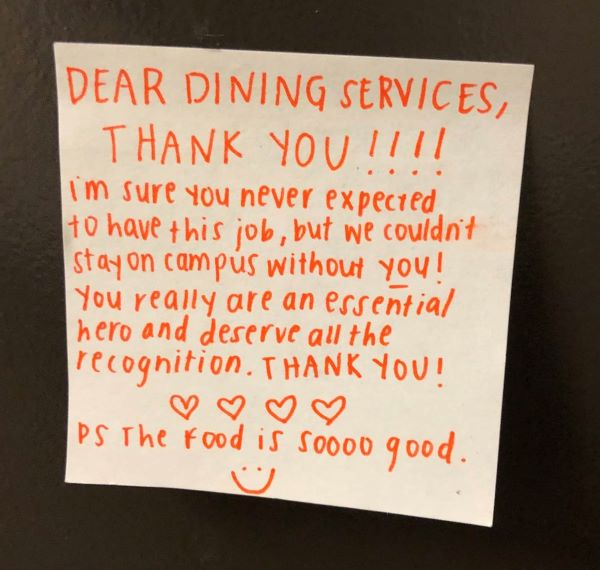 DEAR DINING SERVICES,
THANK YOU!!!!
i'm sure you never expected
to have this job, but we couldn't
stay on campus without you!
You really are an essential
hero and deserve all the
recognition. THANK YOU!
♡ ♡ ♡ ♡
PS The Food is soooo good.